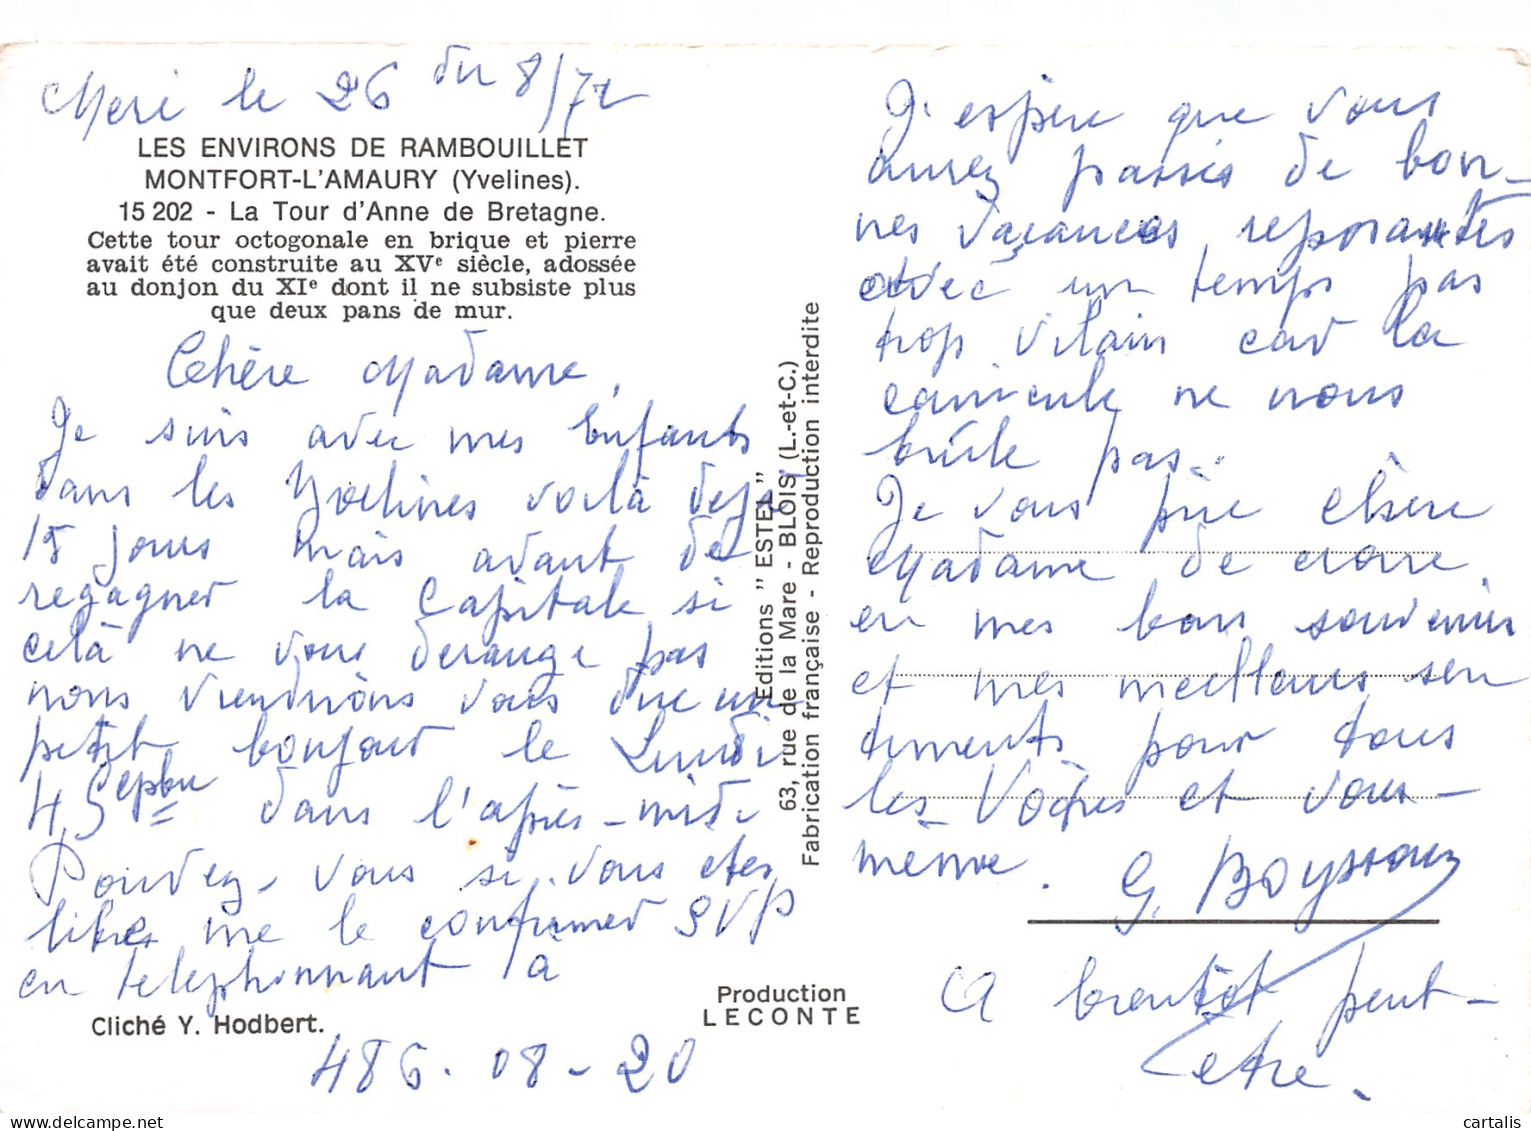 Meré le 26 du 8/72
LES ENVIRONS DE RAMBOUILLET
MONTFORT-L'AMAURY (Yvelines).
15 202 - La Tour d'Anne de Bretagne.
Cette tour octogonale en brique et pierre
avait été construite au XVe siècle, adossée
au donjon du XIe dont il ne subsiste plus
que deux pans de mur.
Chère Madame,
Je suis avec mes Enfants
dans les Yvelines voilà deja
15 jours mais avant de
regagner la Capitale si
celà ne vous derange pas
nous viendrions vous dire un
petit bonjour le Lundi
4 Sepbre dans l'après-midi
Pouvez-vous si vous etes
libres me le confirmer SVP
en telephonnant à
Cliché Y. Hodbert.
486-08-20
Editions " ESTEL "
63, rue de la Mare - BLOIS (L.-et-C.)
Fabrication française - Reproduction interdite
Production
LECONTE
J'espère que vous
aurez passés de bon-
nes vacances reposantes
avec un temps pas
trop vilain car la
canicule ne nous
brûle pas.
Je vous prie chère
Madame de croire
en mes bons souvenirs
et mes meilleurs sen
timents pour tous
les Votres et vous-
même.
G. Boyssou
A bientôt peut-
etre.
cartalis